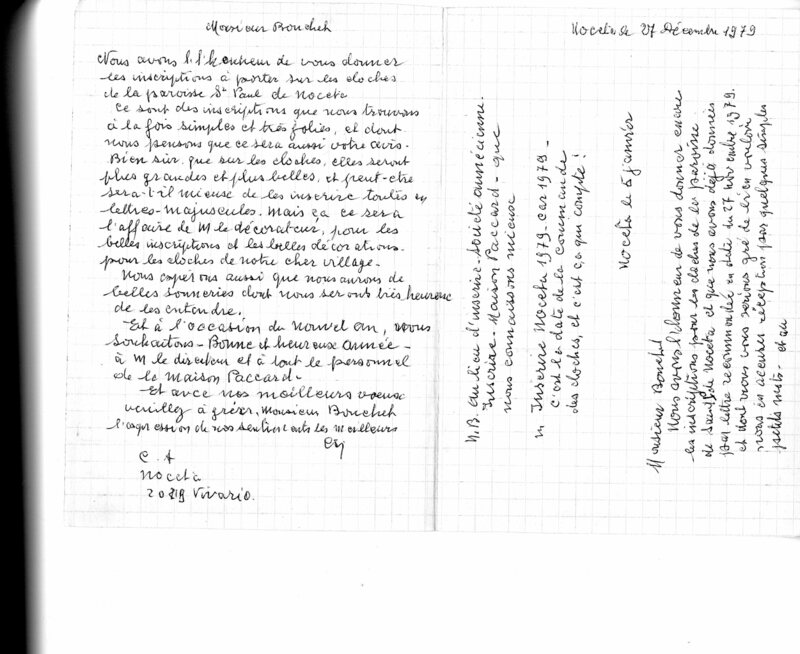 Monsieur Bouchet
Noceta le 27 Décembre 1979
Nous avons l'honneur de vous donner
les inscriptions à porter sur les cloches
de la paroisse St Paul de Noceta
ce sont des inscriptions que nous trouvons
à la fois simples et très jolies, et dont
nous pensons que ce sera aussi votre avis.
Bien sûr que sur les cloches, elles seront
plus grandes et plus belles, et peut-être
sera-t'il mieux de les inscrire toutes en
lettres-majuscules. Mais ça ce sera
l'affaire de M le décorateur, pour les
belles inscriptions et les belles décorations.
pour les cloches de notre cher village.
Nous espérons aussi que nous aurons de
belles sonneries dont nous serons très heureux
de les entendre.
Et à l'occasion du nouvel an, nous
souhaitons - Bonne et heureux année -
à M le directeur et à tout le personnel
de la Maison Paccard -
Et avec nos meilleurs voeux
veuillez agréer, Monsieur Bouchet
l'expression de nos sentiments les meilleurs
C. A
Noceta
20219 Vivario.
N.B. au lieu d'inscrire - Société annécienne.
Inscrire - Maison Paccard - que
nous connaissons mieux
Inscrire Noceta 1979 - car 1979 -
c'est la date de la commande
des cloches, et c'est ça qui compte!
Noceta le 5 janvier
Monsieur Bouchet
Nous avons l'honneur de vous donner encore
les inscriptions pour les cloches de la paroisse
de Noceta et que nous avons déjà données
par lettre recommandée en date du 27 novembre 1979.
et dont nous vous serions gré de bien vouloir
nous en accuser réception par quelques simples
petits mots - et au